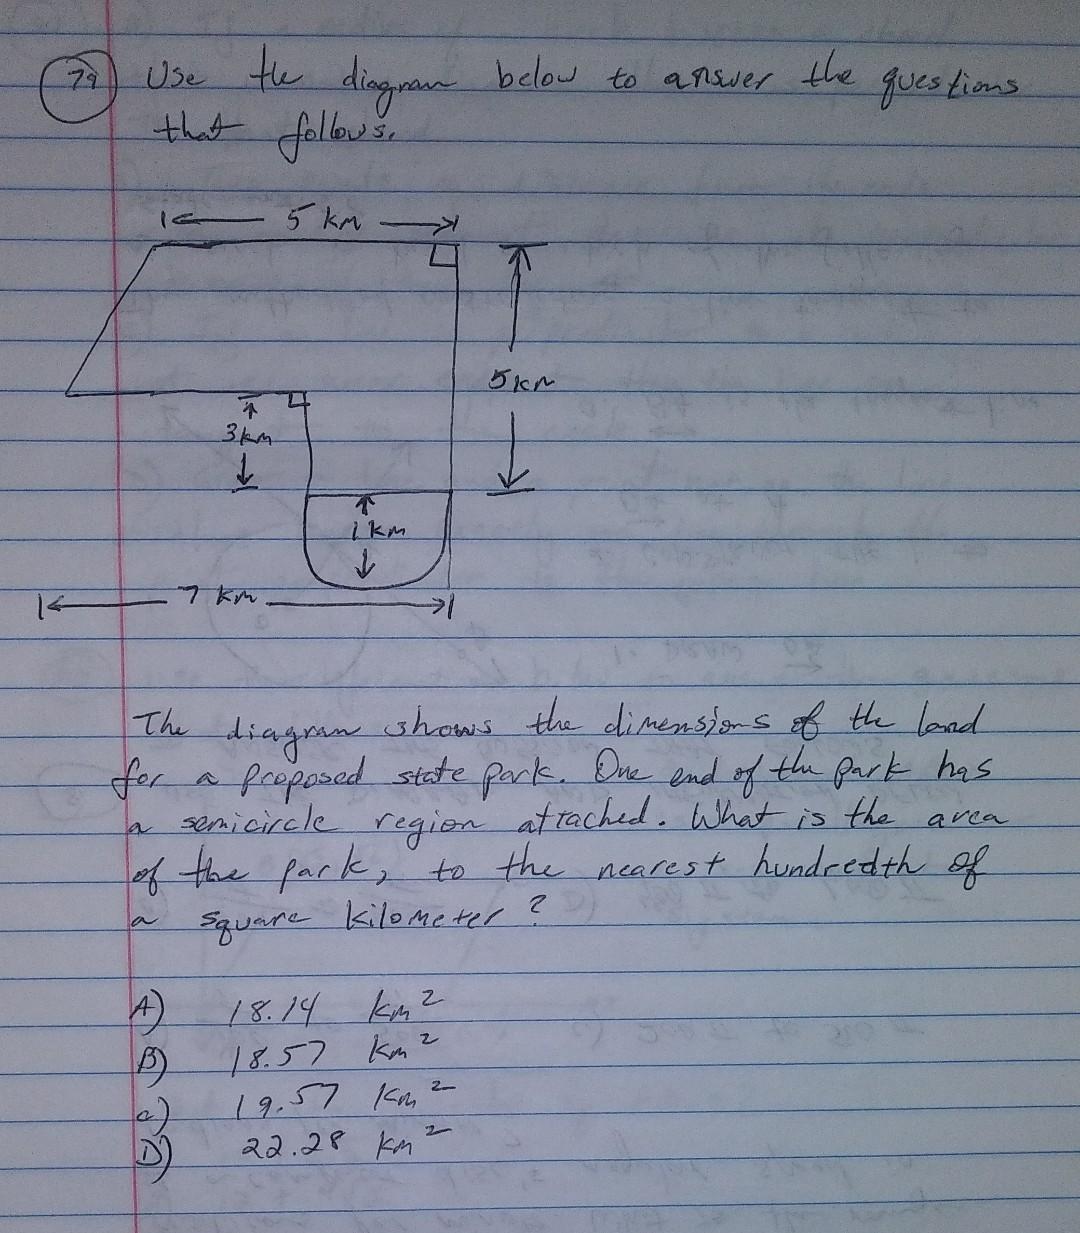 79 Use the diagram below to answer the questions
that follows.
5 km
5 km
3 km
1 km
7 km
The diagram shows the dimensions of the land
for a proposed state park. One end of the park has
a semicircle region attached. What is the area
of the park, to the nearest hundredth of
a square kilometer?
A) 18.14 km²
B) 18.57 km²
c) 19.57 km²
D) 22.28 km²